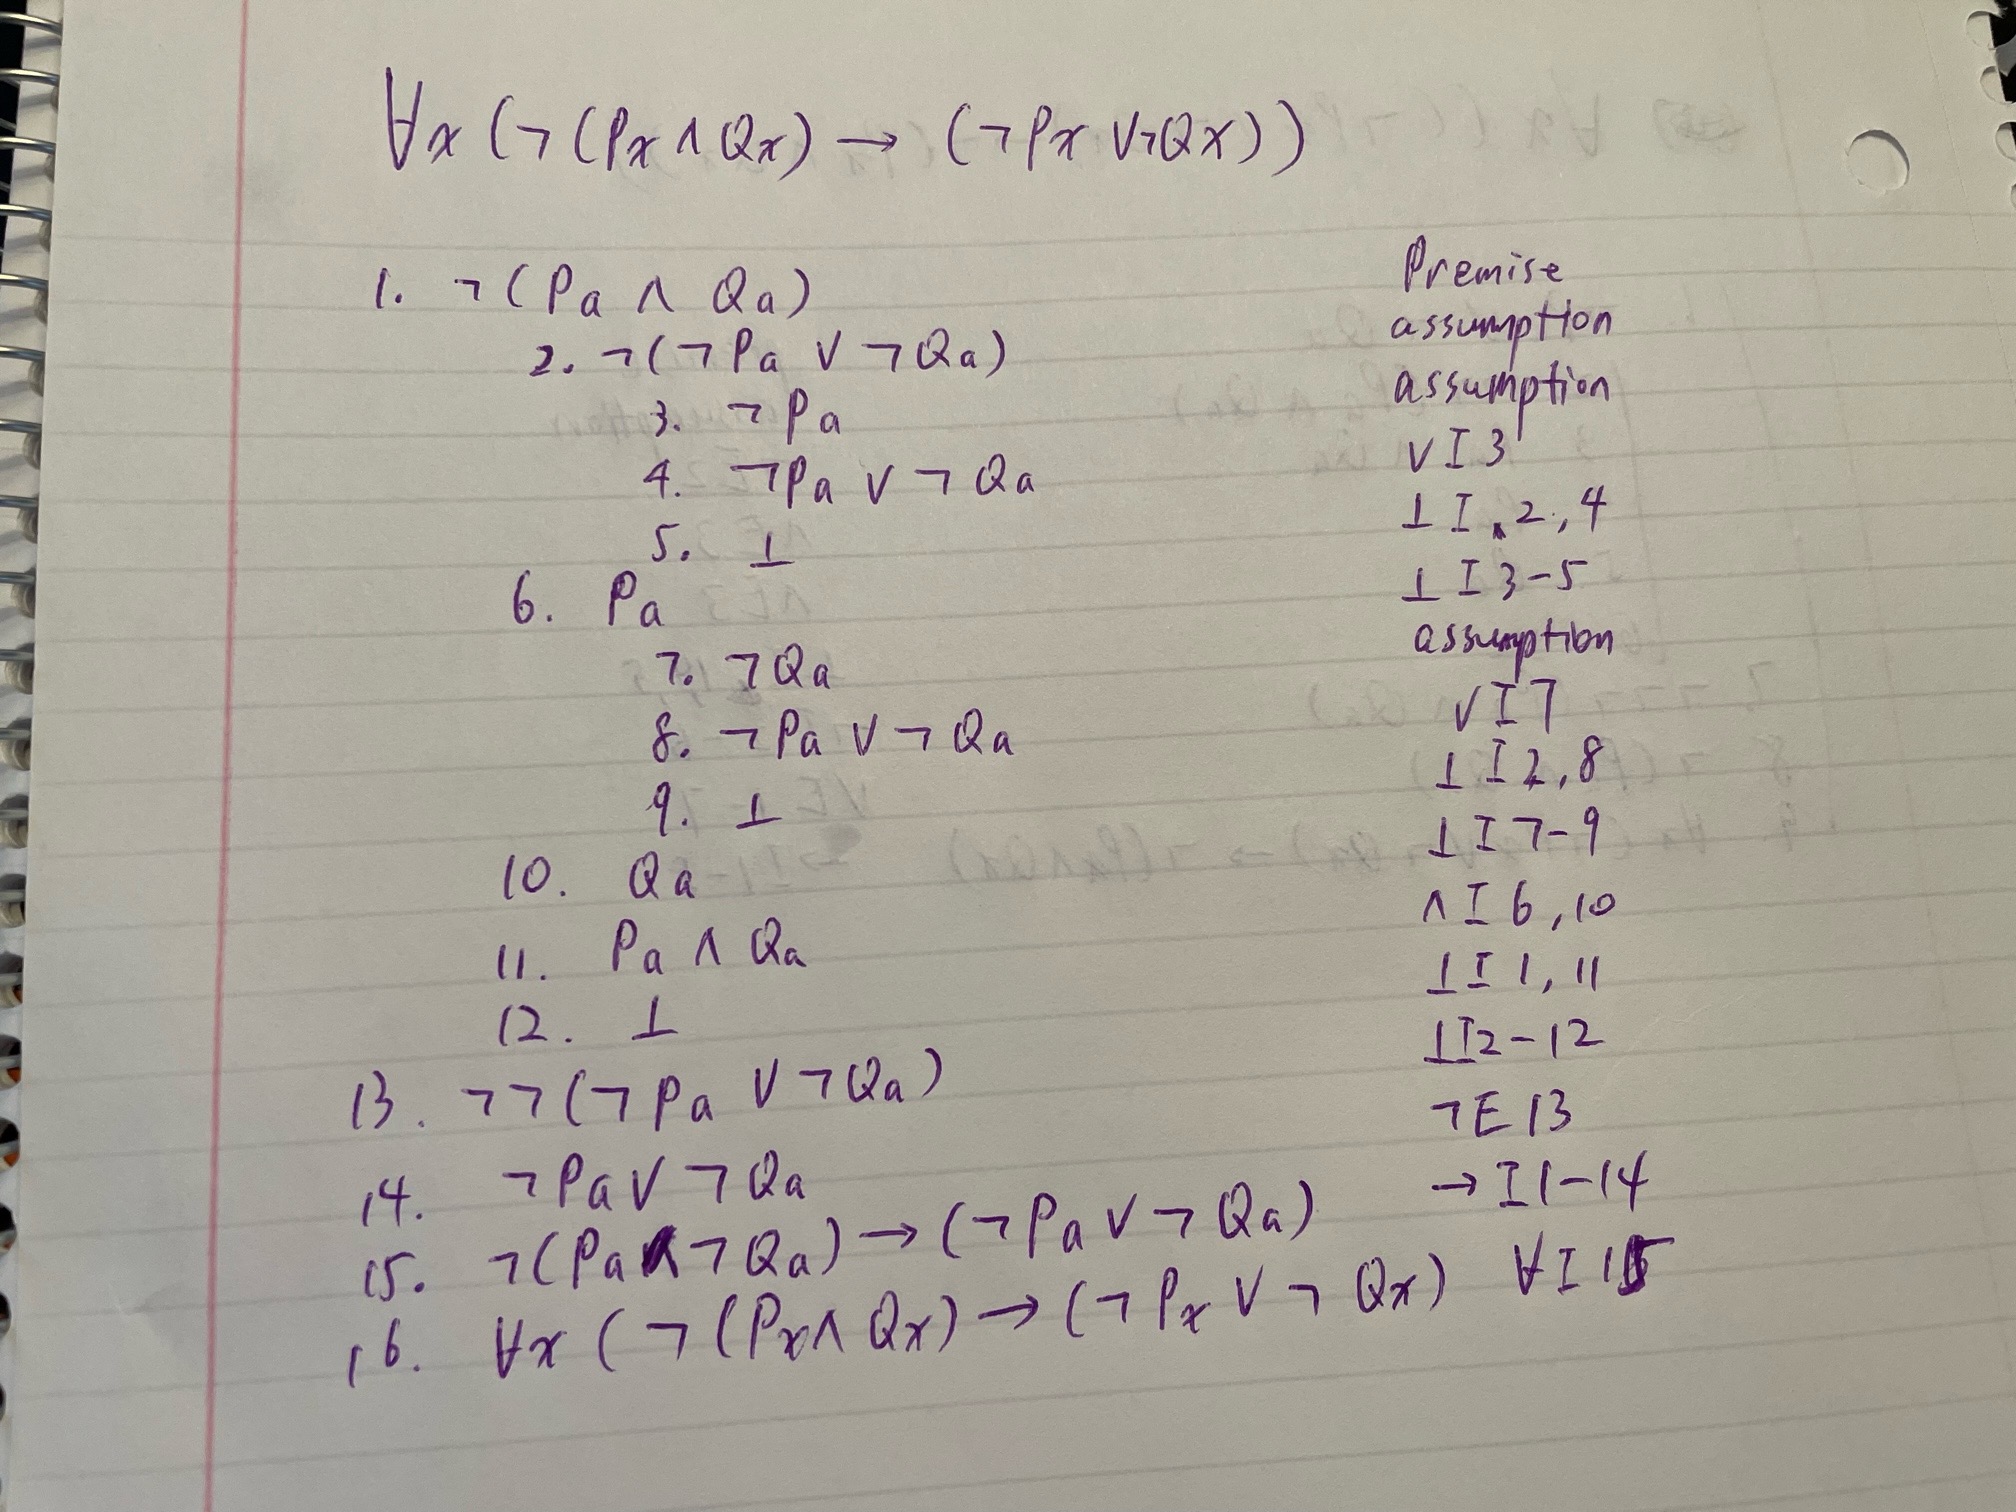 ∀x (¬(Px ∧ Qx) → (¬Px ∨¬Qx))
1. ¬(Pa ∧ Qa) Premise
2. ¬(¬Pa ∨ ¬Qa) assumption
3. ¬Pa assumption
4. ¬Pa ∨ ¬Qa ∨I 3
5. ⊥ ⊥I 2,4
6. Pa ⊥I 3-5
7. ¬Qa assumption
8. ¬Pa ∨ ¬Qa ∨I 7
9. ⊥ ⊥I 2,8
10. Qa ⊥I 7-9
11. Pa ∧ Qa ∧I 6,10
12. ⊥ ⊥I 1,11
13. ¬¬(¬Pa ∨ ¬Qa) ⊥I 2-12
14. ¬Pa ∨ ¬Qa ¬E 13
15. ¬(Pa ∧ ¬Qa) → (¬Pa ∨ ¬Qa) →I 1-14
16. ∀x (¬(Px ∧ Qx) → (¬Px ∨ ¬Qx) ∀I 15